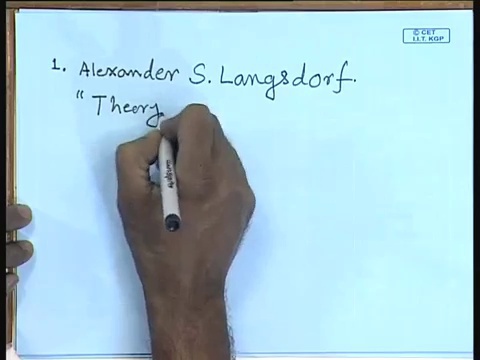 © CET
I.I.T. KGP
1. Alexander S. Langsdorf.
" Theory